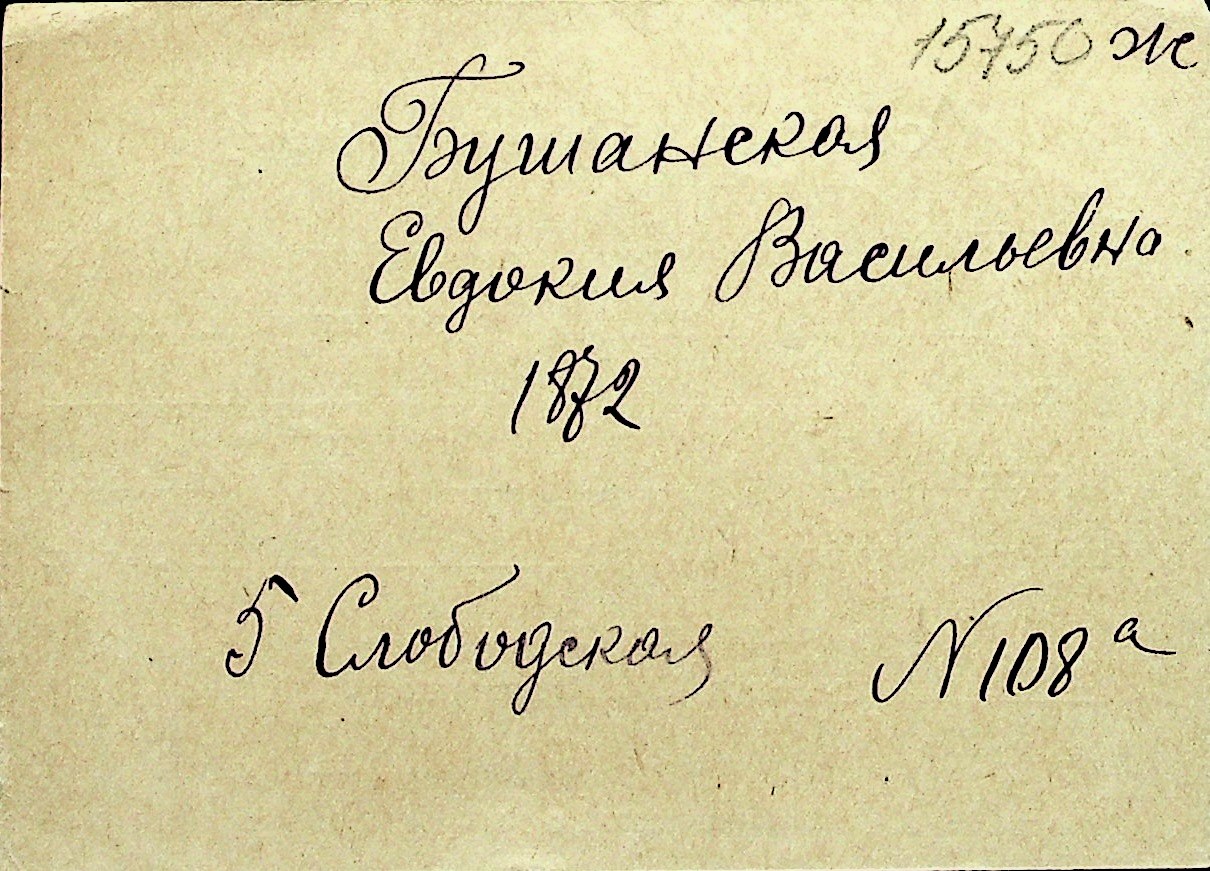 15450 ж
Бушанская
Евдокия Васильевна
1872
5 Слободская N 108 а